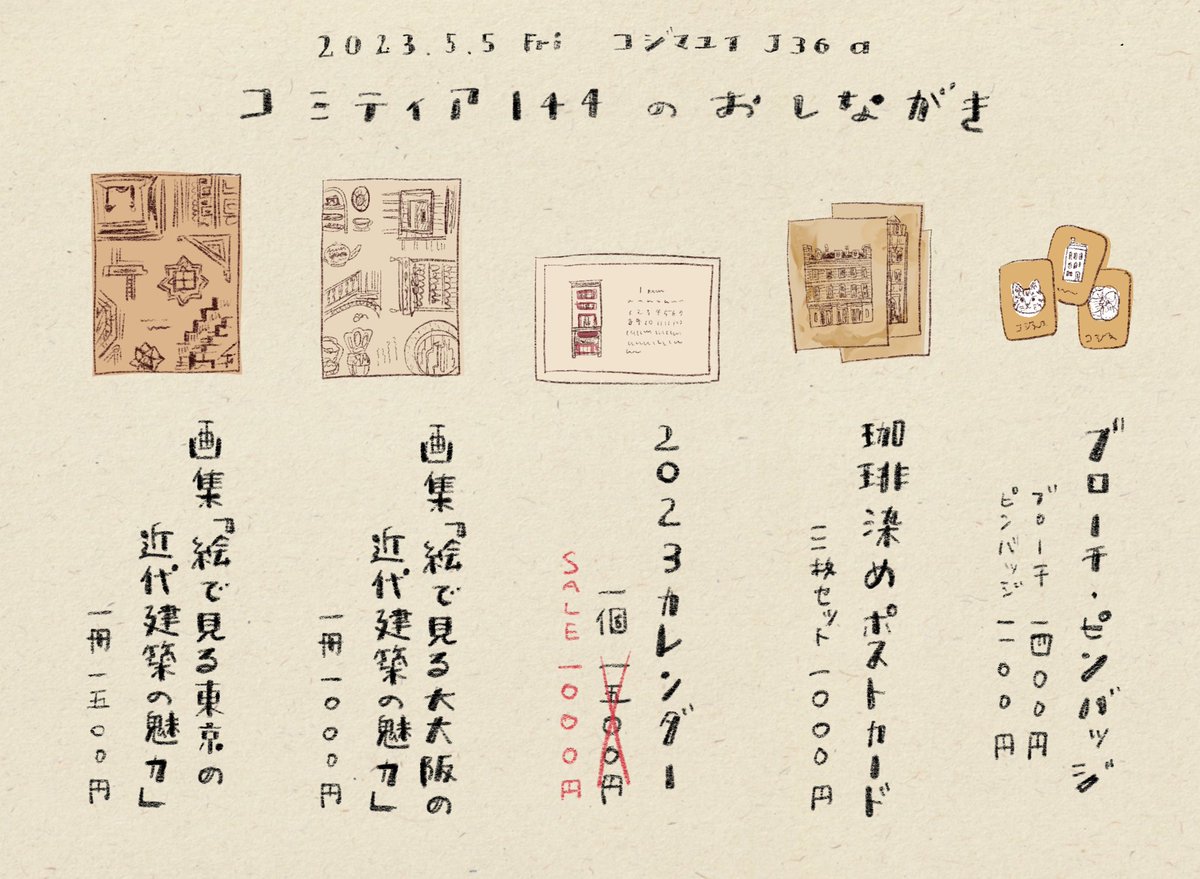 2023.5.5 Fri コジマユイ J36a
コミティア144のおしながき
ブローチ・ピンバッジ
ブローチ 一四〇〇円
ピンバッジ 一一〇〇円
珈琲染めポストカード
三枚セット 一〇〇〇円
2023カレンダー
一個 一五〇〇円
SALE 一〇〇〇円
画集『絵で見る大大阪の
近代建築の魅力』
一冊 一〇〇〇円
画集『絵で見る東京の
近代建築の魅力』
一冊 一五〇〇円